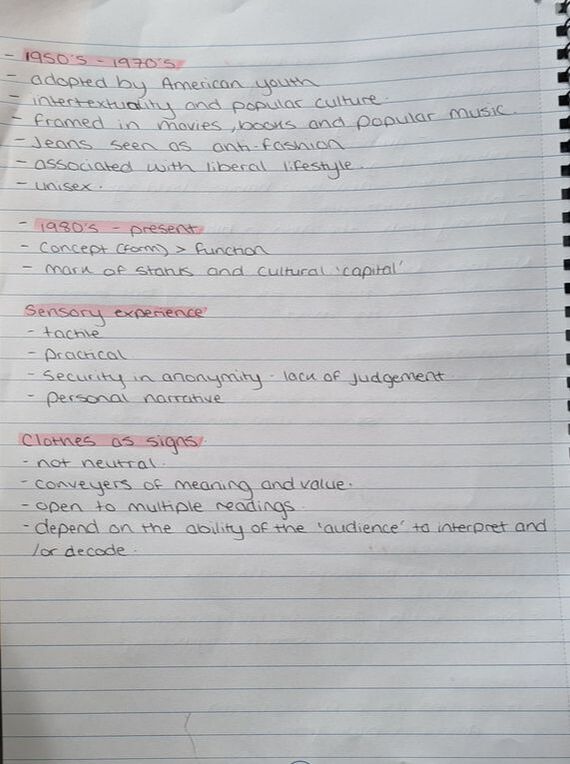 - 1950's - 1970's
- adopted by American youth
- intertextuality and popular culture.
- framed in movies, books and popular music.
- Jeans seen as anti-fashion
- associated with liberal lifestyle.
- unisex.
- 1980's - present
- Concept (form) > function
- mark of status and cultural 'capital'
Sensory experience
- tactile
- practical
- Security in anonymity - lack of judgement.
- personal narrative
Clothes as signs.
- not neutral.
- conveyers of meaning and value.
- open to multiple readings.
- depend on the ability of the 'audience' to interpret and
/or decode.